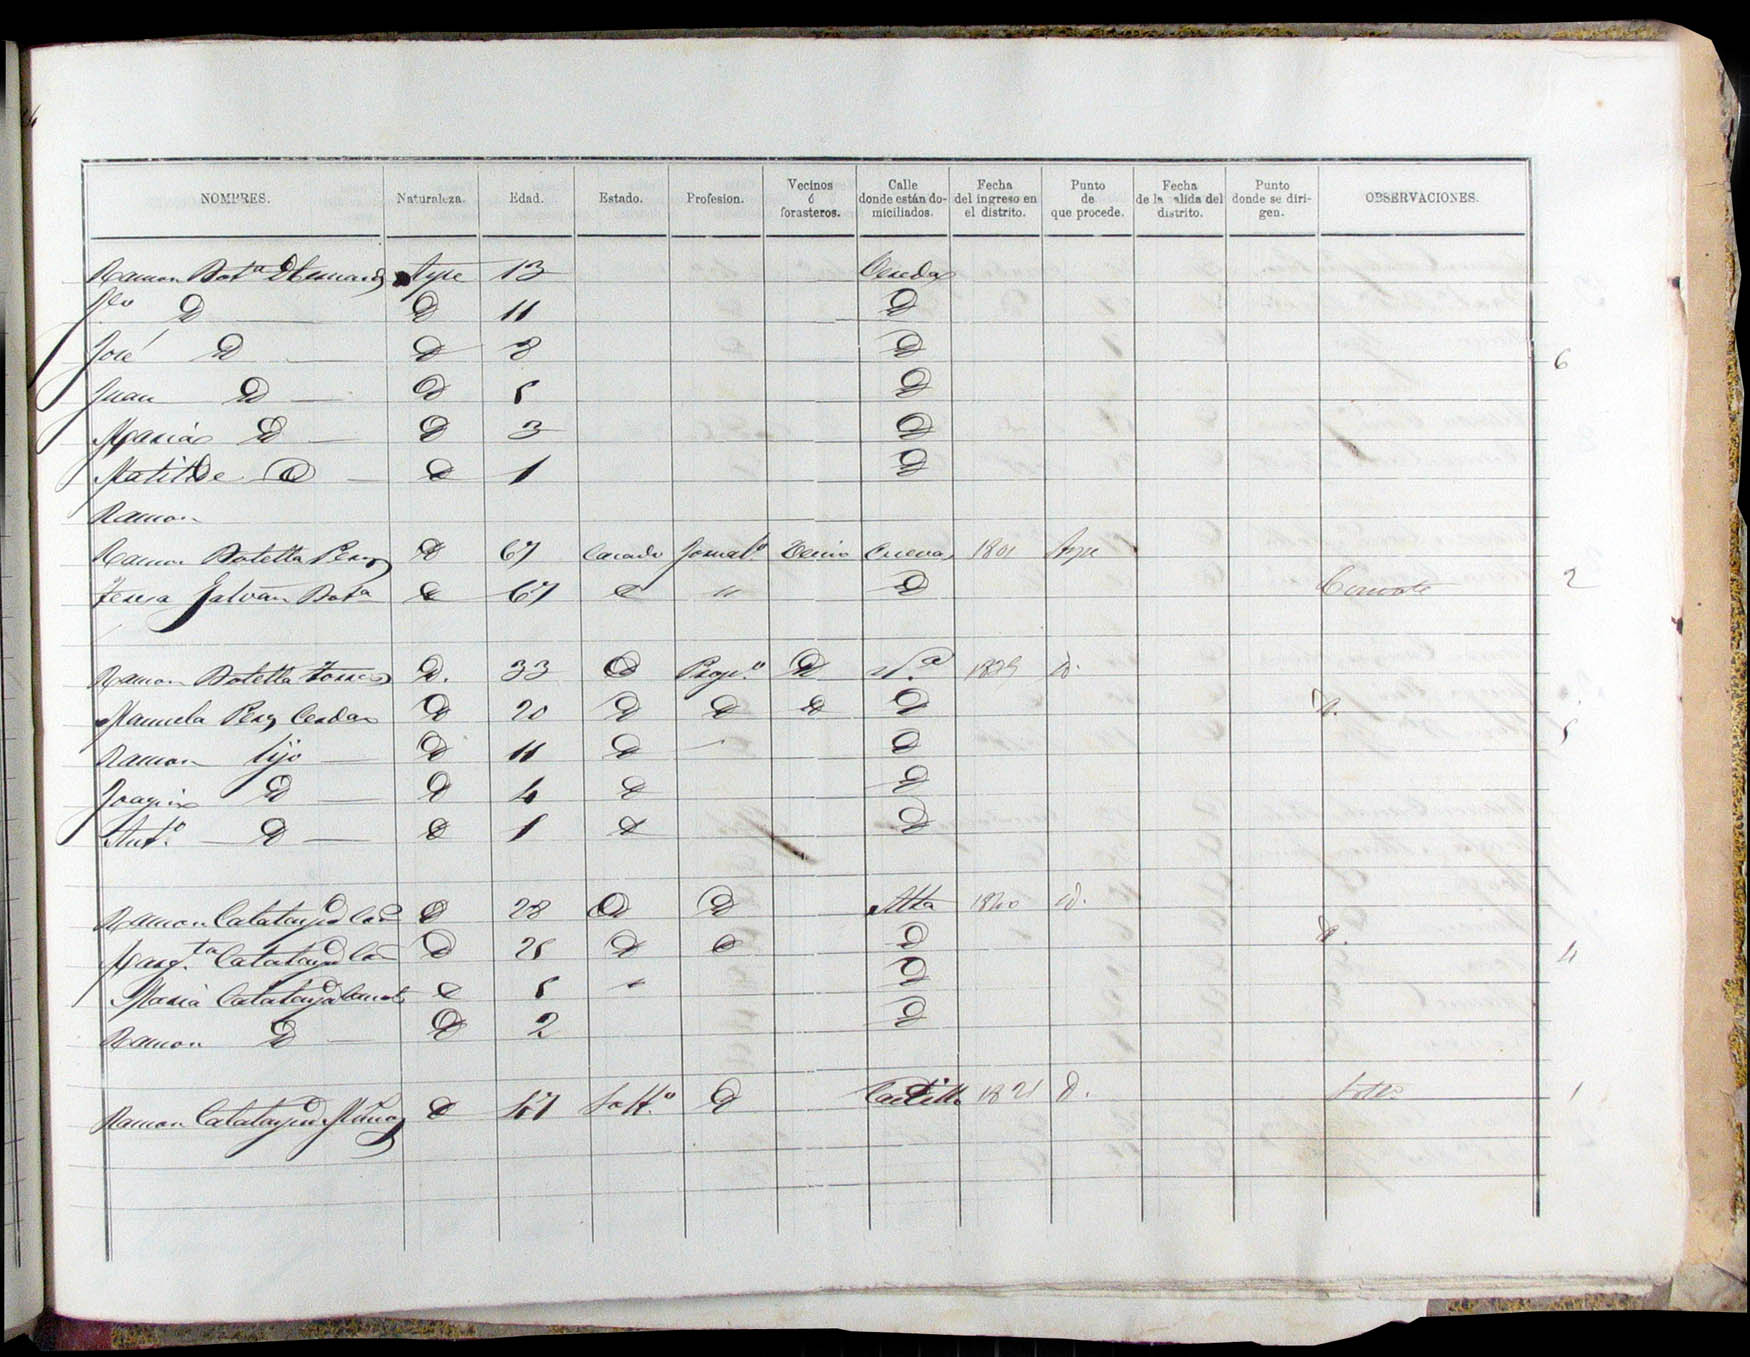 NOMBRES. Naturaleza. Edad. Estado. Profesion. Vecinos ó forasteros. Calle donde están domiciliados. Fecha del ingreso en el distrito. Punto de que procede. Fecha de la salida del distrito. Punto donde se dirigen. OBSERVACIONES.
Ramon Bot.ª 13
D D 11 D
José D D 8 D 6
Juan D D 5 D
Maria D D 3 D
Matilde D D 1 D
Ramon
Ramon Botella Perez D 67 Casado Jornal.º Vecino Cuevas 1801 Aspe
Teresa Galvañ Bot.ª D 67 D " D 2
Ramon Botella D. 33 D Prop.º D N.ª 1829 D.
Manuela Perez Cerdan D 20 D D D D D. 5
Ramon hijo D 11 D D
Joaquin D D 4 D D
Ant.º D D 1 D D
Ramon Calatayud D 28 D D Alta 1840 D.
Marg.ta Calatayud D 25 D D D D. 4
Maria Calatayud D 5 " D
Ramon D D 2 D
Ramon Calatayud D 47 Solt.º D Castillo 1821 D. 1